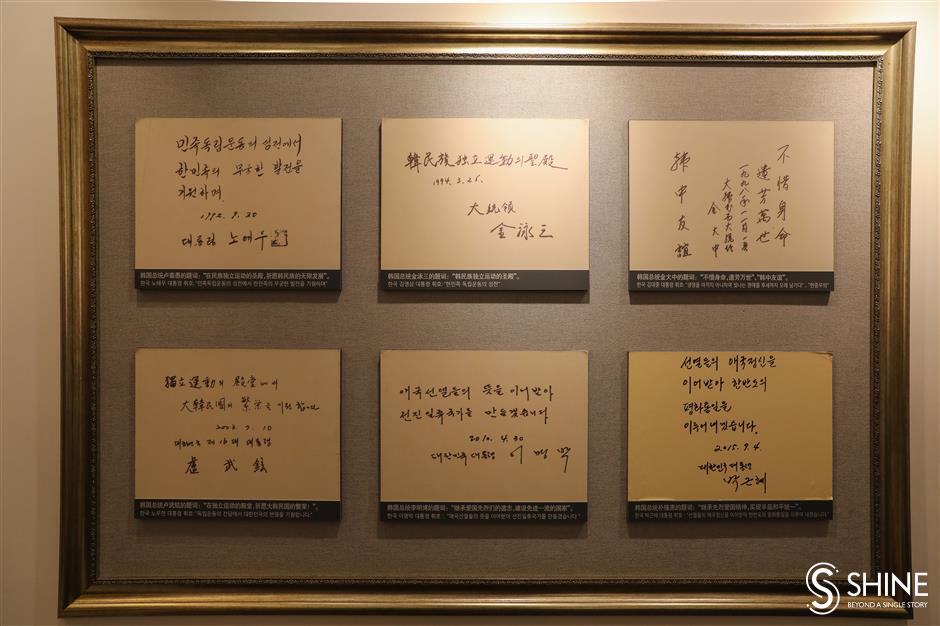 민족독립운동의 성전에서
한민족의 무궁한 발전을
기원하며
1992. 9. 30
대통령 노태우
韩国总统卢泰愚的题词：“在民族独立运动的圣殿，祈愿韩民族的无限发展”。
한국 노태우 대통령 휘호: "민족독립 운동의 성전에서 한민족의 무궁한 발전을 기원하며"
韓民族獨立運動의聖殿
1994. 3. 26.
大統領
金泳三
韩国总统金泳三的题词：“韩民族独立运动的圣殿”。
한국 김영삼 대통령 휘호: "한민족 독립운동의 성전"
不惜身命
遺芳萬世
一九九八年十一月
大韓民國大統領
金大中
韩中友誼
韩国总统金大中的题词：“不惜身命，遗芳万世”、“韩中友谊”。
한국 김대중 대통령 휘호: "생명을 아끼지 아니하여 빛나는 명예를 후세까지 오래 남기다", "한중우의"
獨立運動의 殿堂에서
大韓民國의 繁榮을 기원합니다
2003. 7. 10
대한민국 제16대 대통령
盧武鉉
韩国总统卢武铉的题词：“在独立运动的殿堂，祈愿大韩民国的繁荣！”。
한국 노무현 대통령 휘호: "독립운동의 전당에서 대한민국의 번영을 기원합니다"
애국선열들의 뜻을 이어받아
선진일류국가를 만들겠습니다
2010. 4. 30
대한민국 대통령 이명박
韩国总统李明博的题词：“继承爱国先烈们的遗志，建设先进一流的国家”。
한국 이명박 대통령 휘호: "애국선열들의 뜻을 이어받아 선진일류국가를 만들겠습니다"
선열들의 애국정신을
이어받아 한반도의
평화통일을
이루어내겠습니다.
2015. 9. 4.
대한민국 대통령
박근혜
韩国总统朴槿惠的题词：“继承先烈爱国精神，实现半岛和平统一”。
한국 박근혜 대통령 휘호: "선열들의 애국정신을 이어받아 한반도의 평화통일을 이루어 내겠습니다"
SHINE
BEYOND A SINGLE STORY